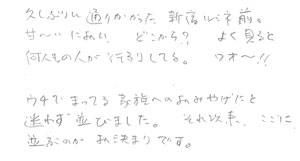 久しぶりに通りかかった新宿ルミネ前。
甘〜いにおい どこから?? よく見ると
何人もの人が行列してる。 ワオ〜!!
ウチでまってる家族へのおみやげにと
迷わず並びました。 それ以来、ここに
並ぶのがお決まりです。